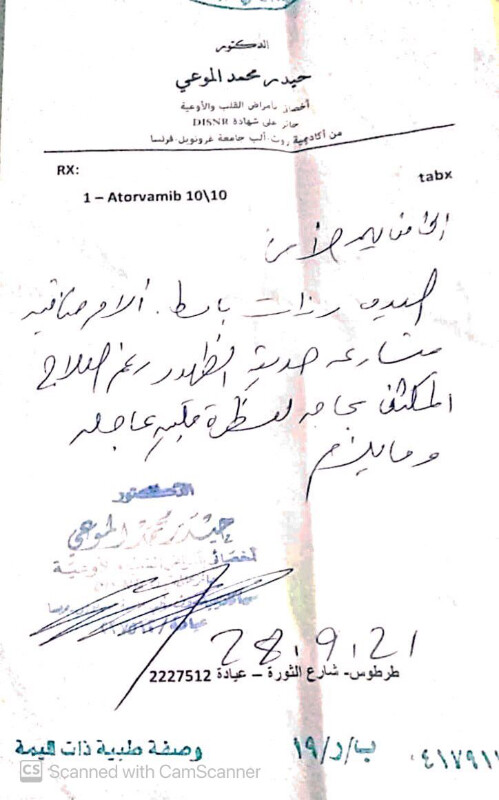 الدكتور
حيدر محمد الموعي
أخصائي بأمراض القلب والأوعية
حائز على شهادة DISNR
من أكاديمية روت ألب جامعة غرونوبل فرنسا
RX:
tabx
1 – Atorvamib 10\10
إلى من يهمه الأمر
السيد رزات باسط. آلام خناقية
متسارعة حديثة الظهور رغم العلاج
المكثف بحاجة لقثطرة قلبية عاجلة
وما يلزم
الدكتور
حيدر محمد الموعي
28.9.21
طرطوس- شارع الثورة – عيادة 2227512
وصفة طبية ذات القيمة
ب/ر/١٩
٠٤١٧٩١١
CS Scanned with CamScanner